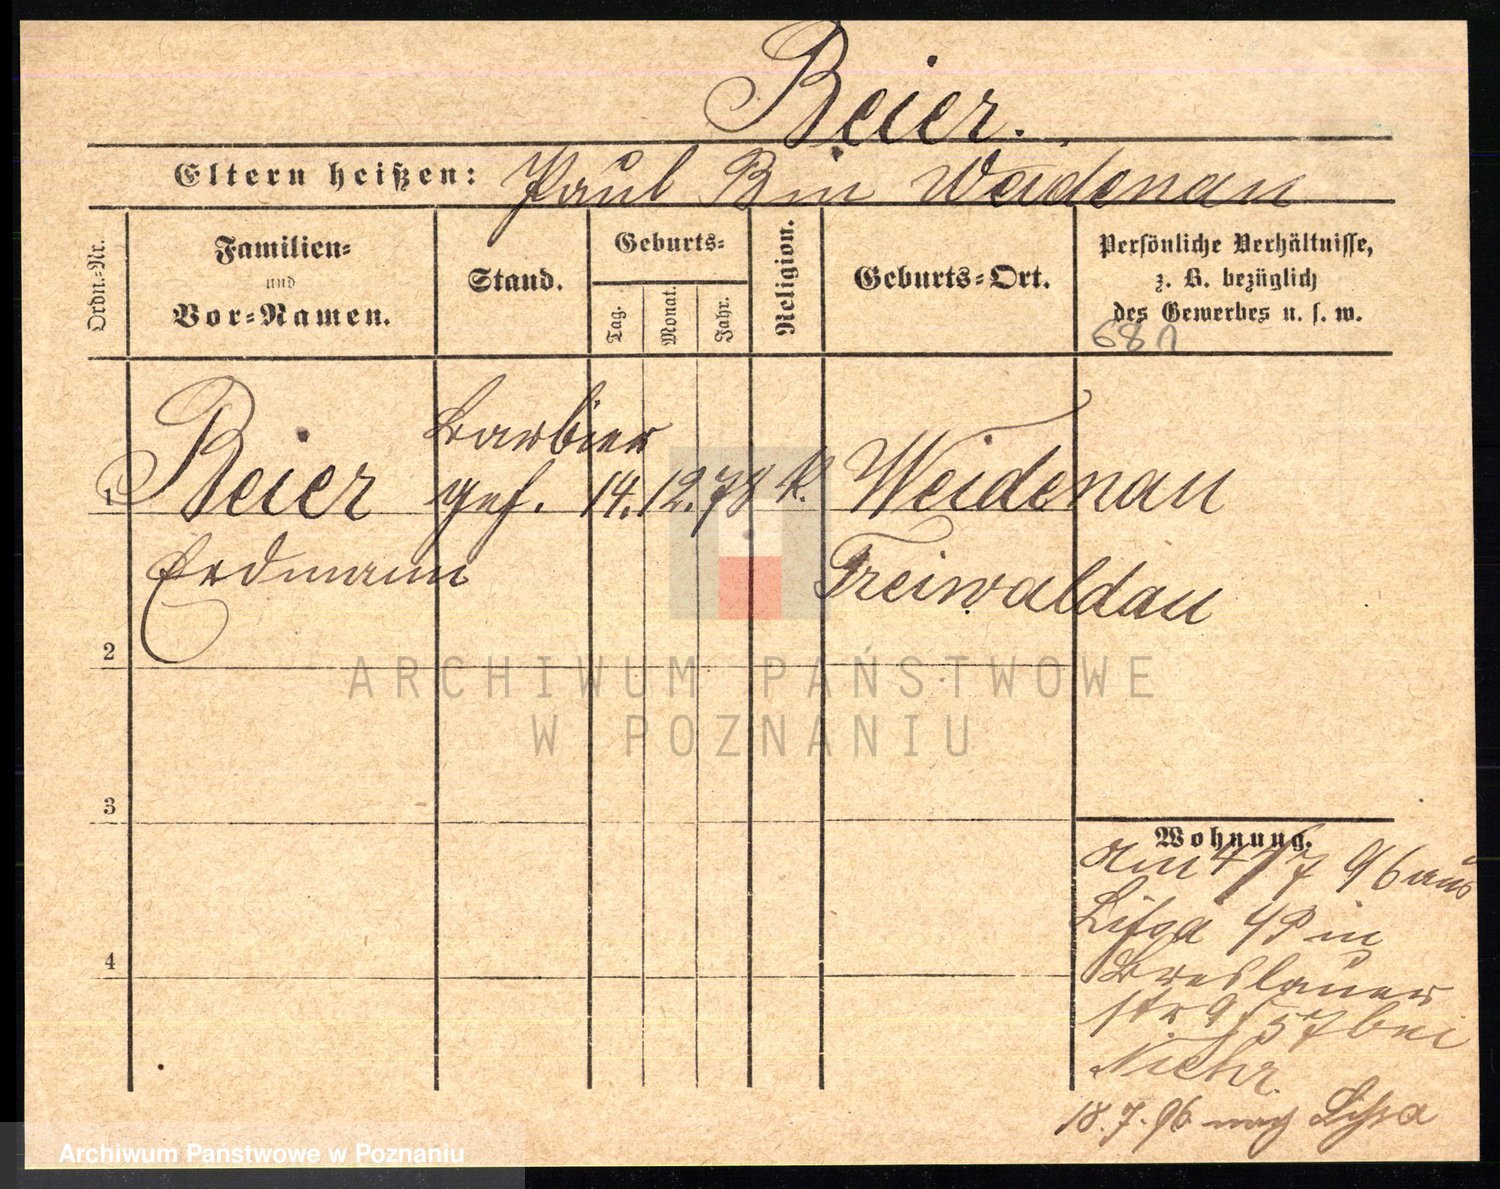 Beier.
Eltern heißen: Paul B in Weidenau
Ordn.=Nr.
Familien=
und
Vor=Namen.
Stand.
Geburts=
Tag.
Monat.
Jahr.
Religion.
Geburts=Ort.
Persönliche Verhältnisse,
z. B. bezüglich
des Gewerbes u. s. w.
Barbier
1 Beier geh. 14. 12. 78 k. Weidenau
Erdmann Freiwaldau
2
ARCHIWUM PAŃSTWOWE
W POZNANIU
3
Wohnung.
am 4/7 96 aus
Lissa in
4
Breslauer
str 9 bei
18. 7. 96 nach Lissa
Archiwum Państwowe w Poznaniu